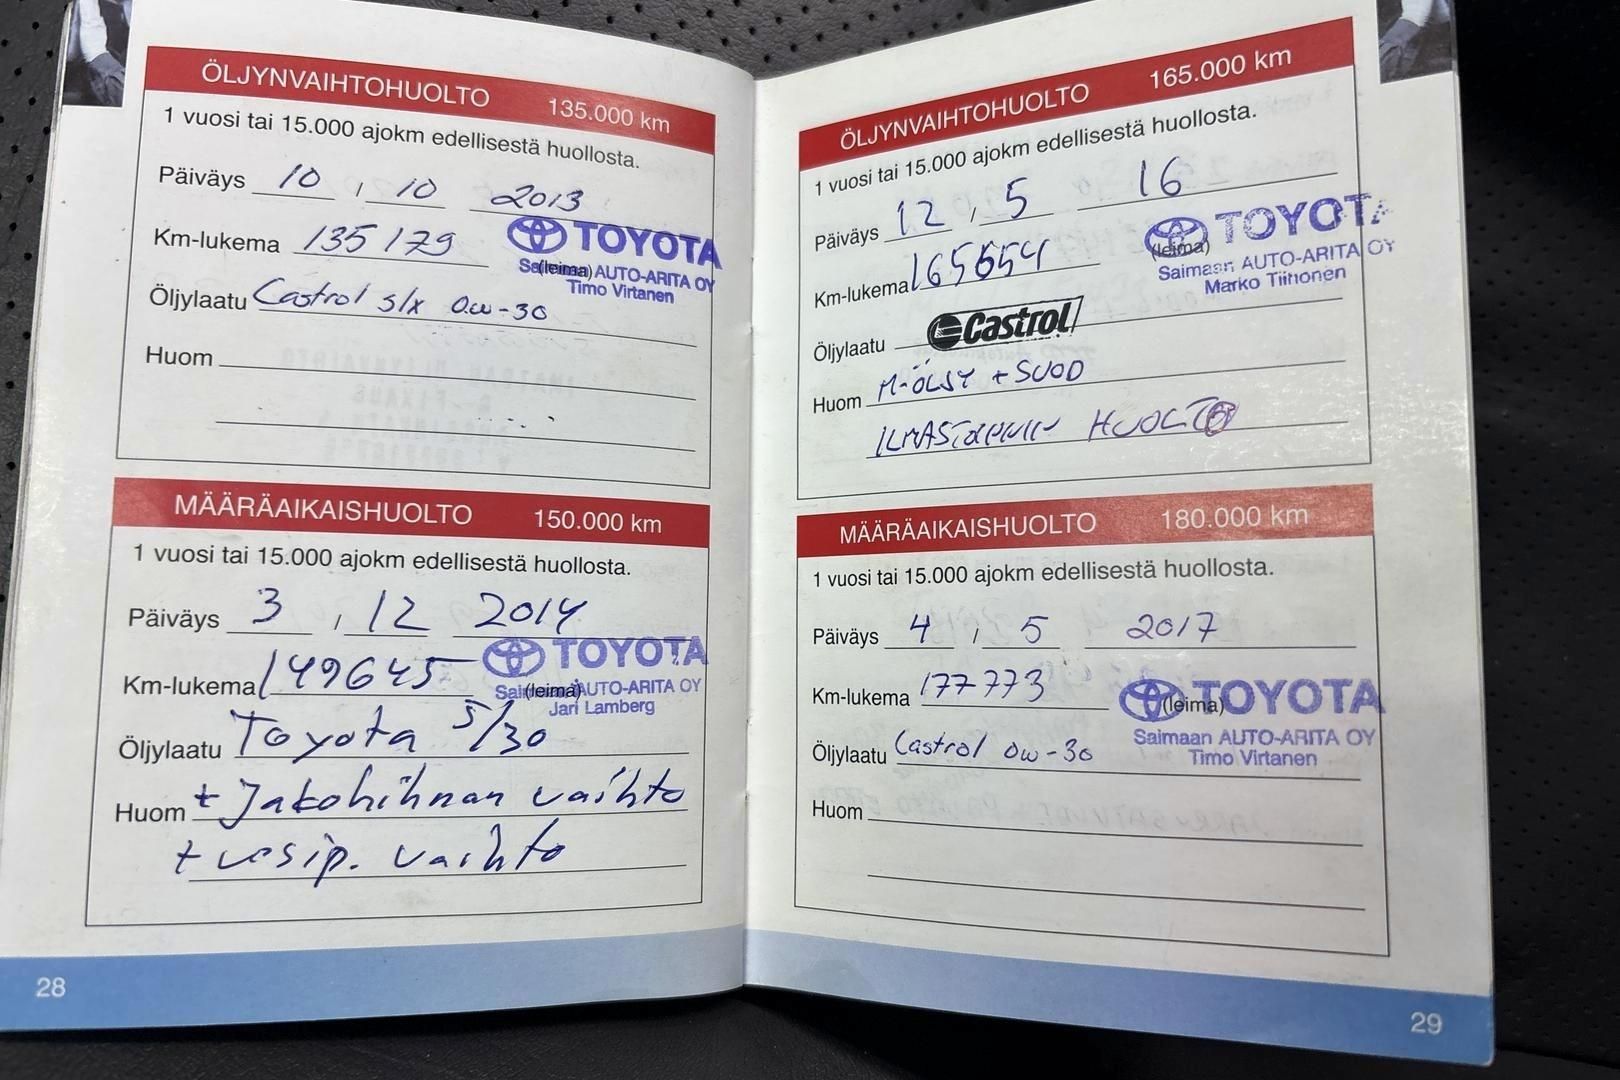 ÖLJYNVAIHTOHUOLTO 135.000 km
1 vuosi tai 15.000 ajokm edellisestä huollosta.
Päiväys 10 , 10 2013
Km-lukema 135179
TOYOTA
(leima) AUTO-ARITA OY
Timo Virtanen
Öljylaatu Castrol slx 0w-30
Huom
MÄÄRÄAIKAISHUOLTO 150.000 km
1 vuosi tai 15.000 ajokm edellisestä huollosta.
Päiväys 3 , 12 2014
Km-lukema 149645
TOYOTA
(leima) AUTO-ARITA OY
Jari Lamberg
Öljylaatu Toyota 5/30
Huom + Jakohihnan vaihto
+ vesip. vaihto
28
ÖLJYNVAIHTOHUOLTO 165.000 km
1 vuosi tai 15.000 ajokm edellisestä huollosta.
Päiväys 12 , 5 16
Km-lukema 165654
TOYOTA
(leima)
Saimaan AUTO-ARITA OY
Marko Tiihonen
Öljylaatu Castrol
Huom M-ÖLJY + SUOD
HUOLTO
MÄÄRÄAIKAISHUOLTO 180.000 km
1 vuosi tai 15.000 ajokm edellisestä huollosta.
Päiväys 4 , 5 2017
Km-lukema 177773
(leima) TOYOTA
Saimaan AUTO-ARITA OY
Timo Virtanen
Öljylaatu Castrol 0w-30
Huom
29